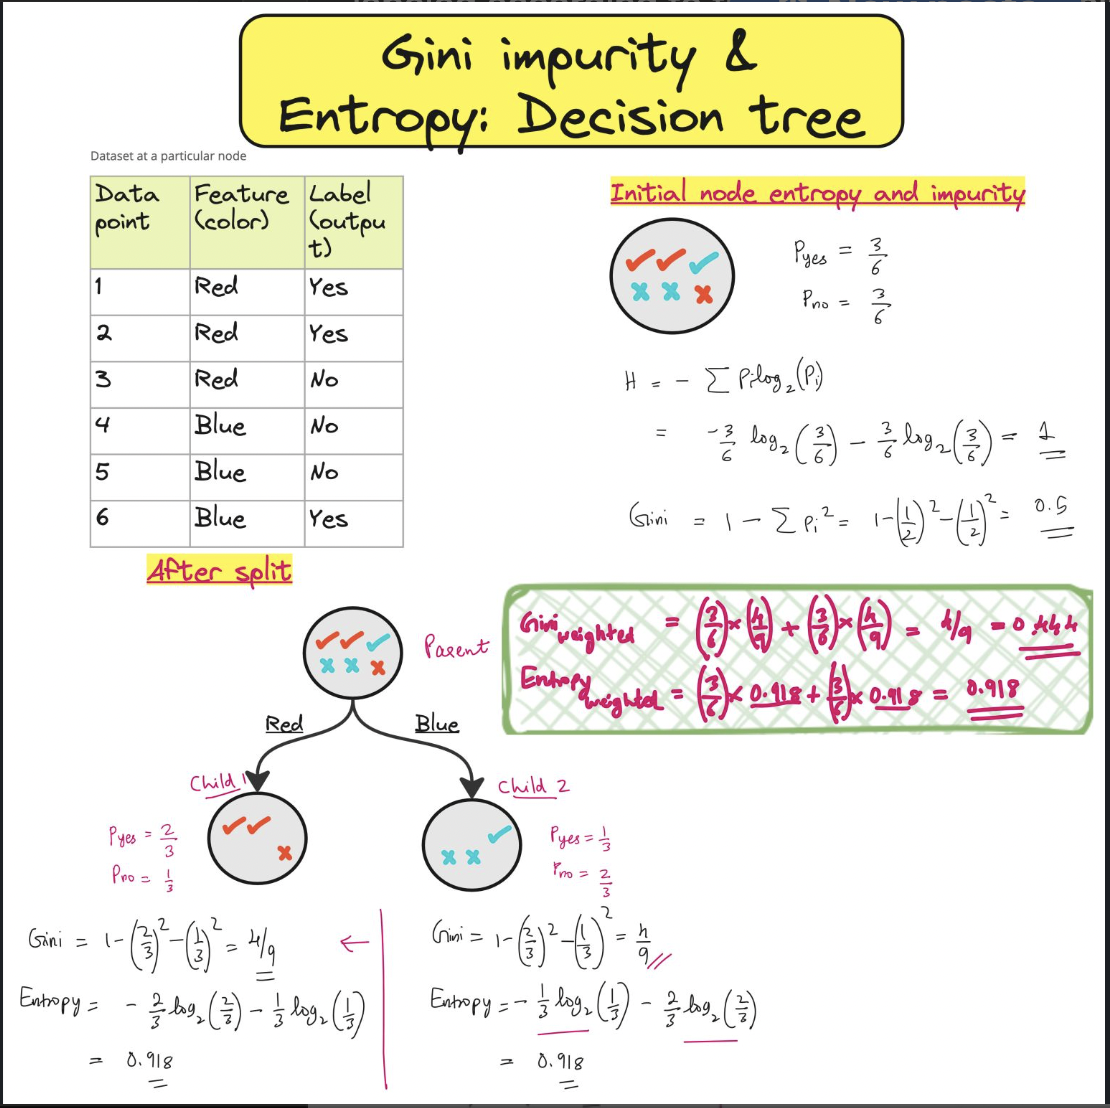 Gini impurity &
Entropy: Decision tree
Dataset at a particular node
Data point | Feature (color) | Label (output)
1 | Red | Yes
2 | Red | Yes
3 | Red | No
4 | Blue | No
5 | Blue | No
6 | Blue | Yes
Initial node entropy and impurity
Pyes = 3/6
Pno = 3/6
H = - ∑ Pi log₂(Pi)
= -3/6 log₂(3/6) - 3/6 log₂(3/6) = 1
Gini = 1 - ∑ Pi² = 1-(1/2)²-(1/2)² = 0.5
After split
Parent
Red
Blue
Child 1
Child 2
Pyes = 2/3
Pno = 1/3
Pyes = 1/3
Pno = 2/3
Gini weighted = (3/6)×(4/9) + (3/6)×(4/9) = 4/9 = 0.444
Entropy weighted = (3/6)× 0.918 + (3/6)× 0.918 = 0.918
Gini = 1-(2/3)²-(1/3)² = 4/9
Entropy = - 2/3 log₂(2/3) - 1/3 log₂(1/3)
= 0.918
Gini = 1-(2/3)²-(1/3)² = 4/9
Entropy = - 1/3 log₂(1/3) - 2/3 log₂(2/3)
= 0.918